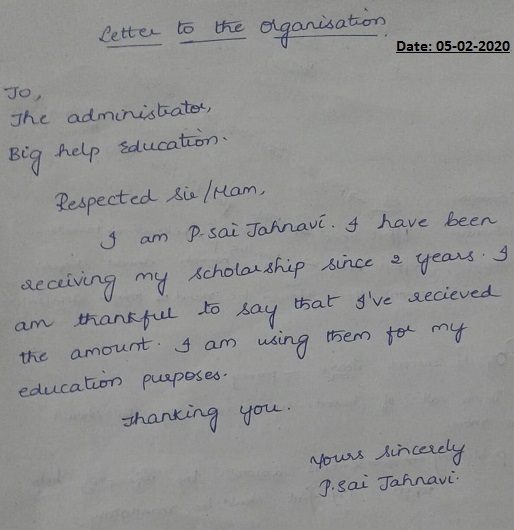 Letter to the organisation.
Date: 05-02-2020
To,
The administrator,
Big help Education.
Respected Sir/Mam,
I am P.sai Jahnavi. I have been
receiving my scholarship since 2 years. I
am thankful to say that I've recieved
the amount. I am using them for my
education purposes.
Thanking you.
Yours sincerely
P.sai Jahnavi.